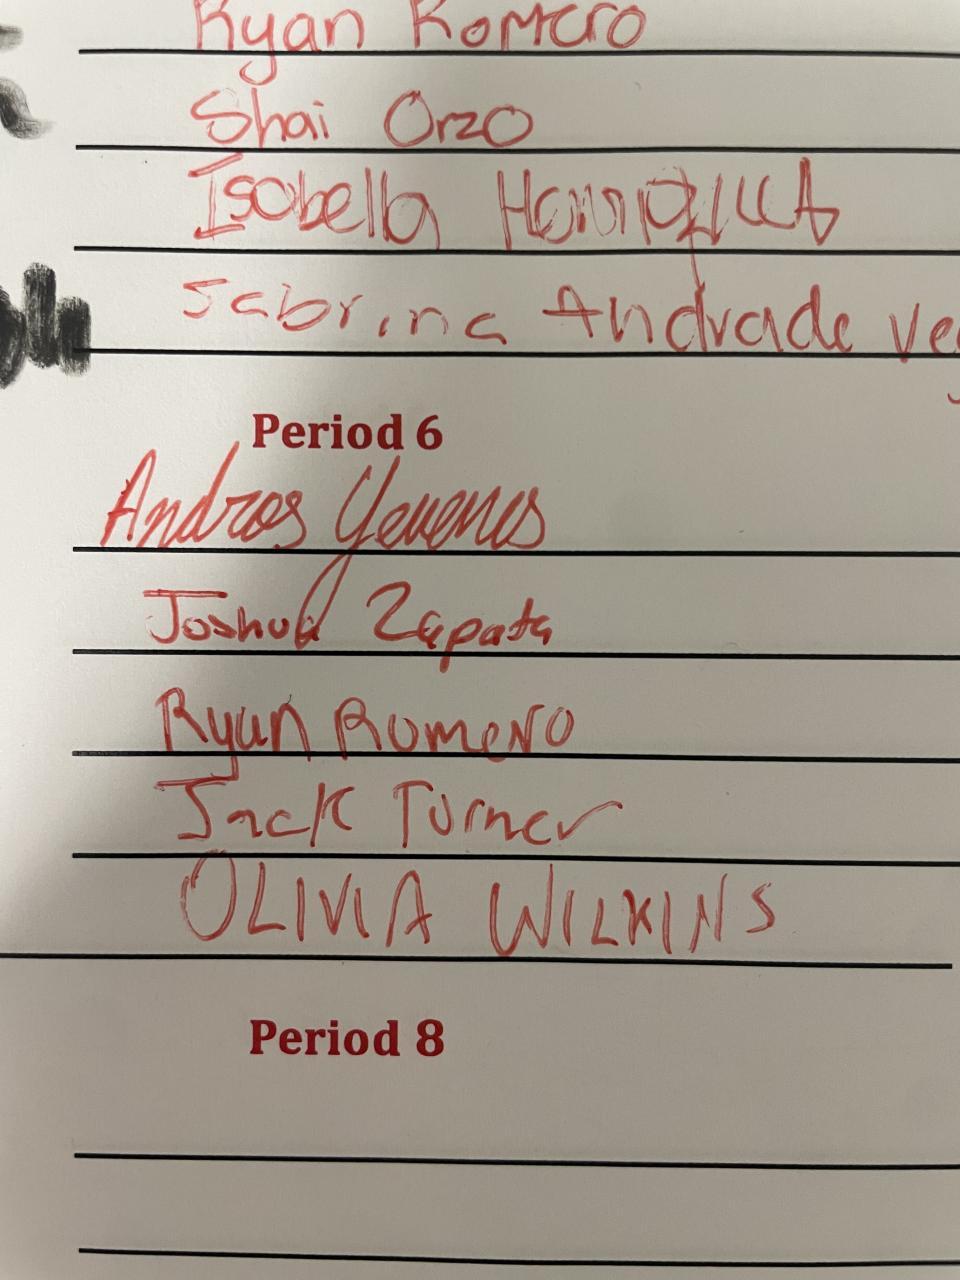 Ryan Romero
Shai Orzo
Isabella Henriquez
Sabrina Andrade
Period 6
Andros
Joshua Zapata
Ryan Romero
Jack Turner
OLIVIA WILKINS
Period 8